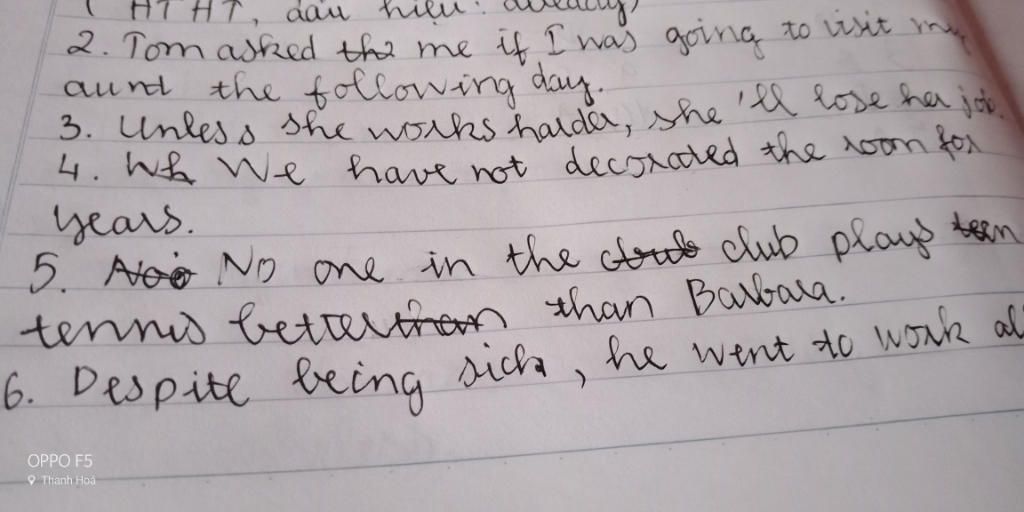 ( HTHT, dấu hiệu: already)
2. Tom asked the me if I was going to visit my
aunt the following day.
3. Unless she works harder, she'll lose her job.
4. Wh We have not decorated the room for
years.
5. No one in the club plays teen
tennis better than than Barbara.
6. Despite being sick, he went to work al
OPPO F5
Thanh Hoá